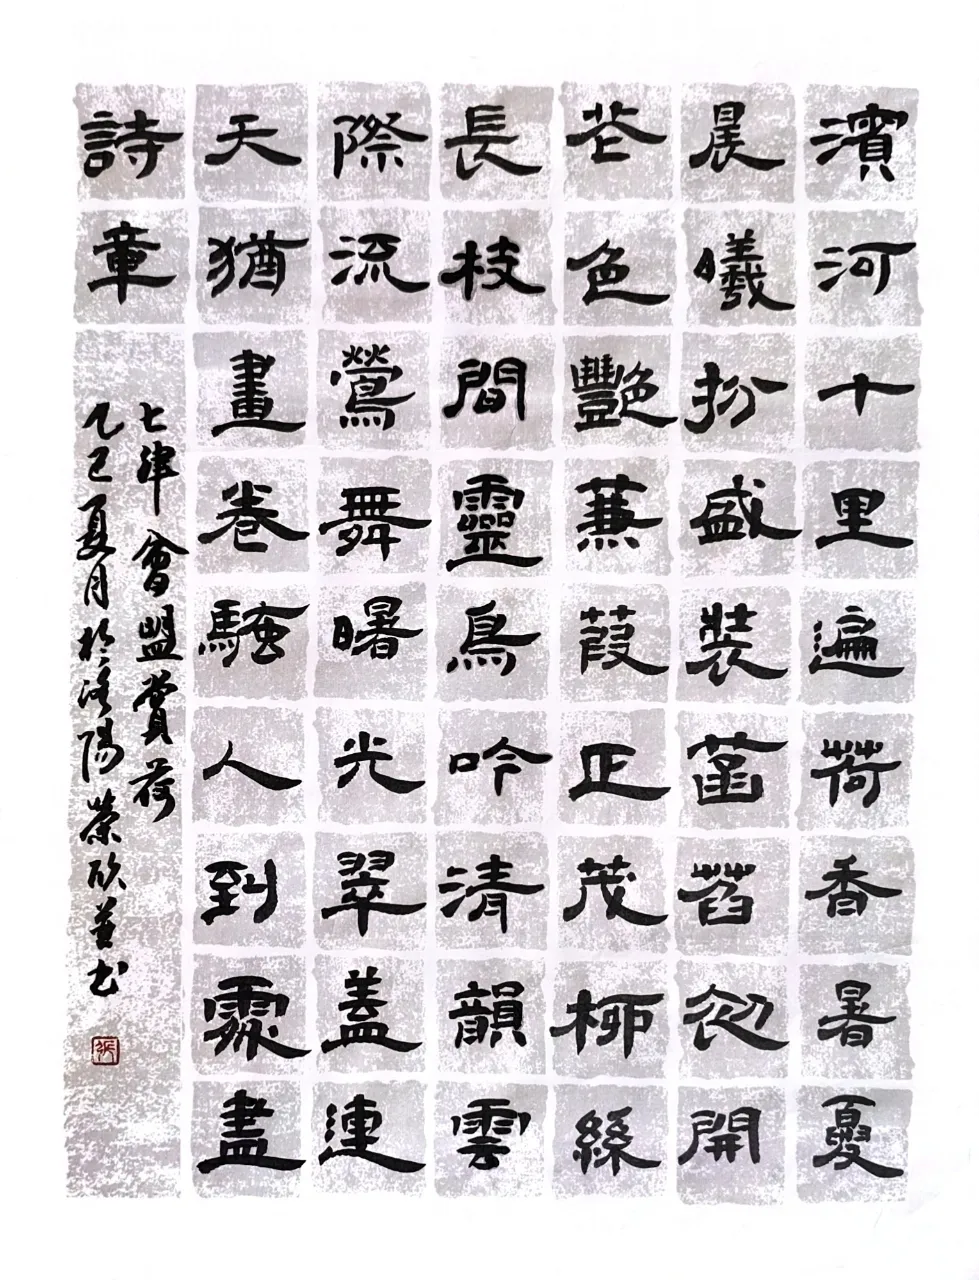 濱河十里遍荷香暑夏
晨曦扮盛裝菡萏初開
花色艷蒹葭正茂柳絲
長枝間靈鳥吟清韻雲
際流鶯舞曙光翠蓋連
天猶畫卷騷人到處盡
詩章
七律會盟賞荷
乙巳夏月於洛陽榮欣并书
張